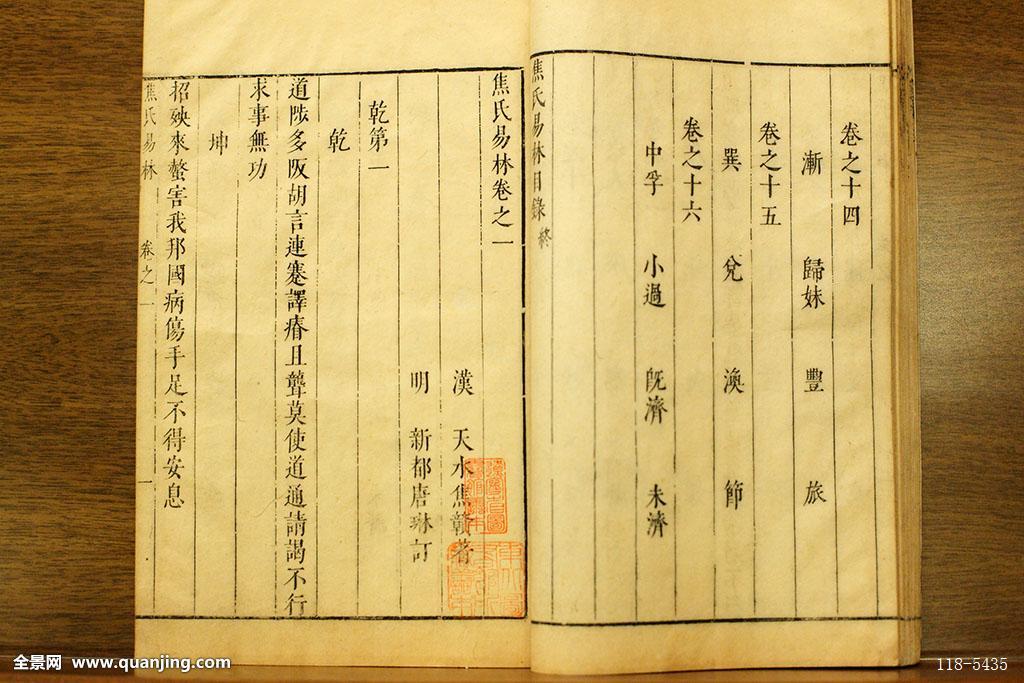 卷之十四
漸 歸妹 豐 旅
卷之十五
巽 兌 渙 節
卷之十六
中孚 小過 旣濟 未濟
焦氏易林目錄 終
焦氏易林卷之一
漢 天水焦贛著
明 新都唐琳訂
乾第一
乾
道陟多阪胡言連蹇譯瘖且聾莫使道通請謁不行
求事無功
坤
招殃來螫害我邦國病傷手足不得安息
焦氏易林 卷之一 一
全景网 www.quanjing.com
118-5435